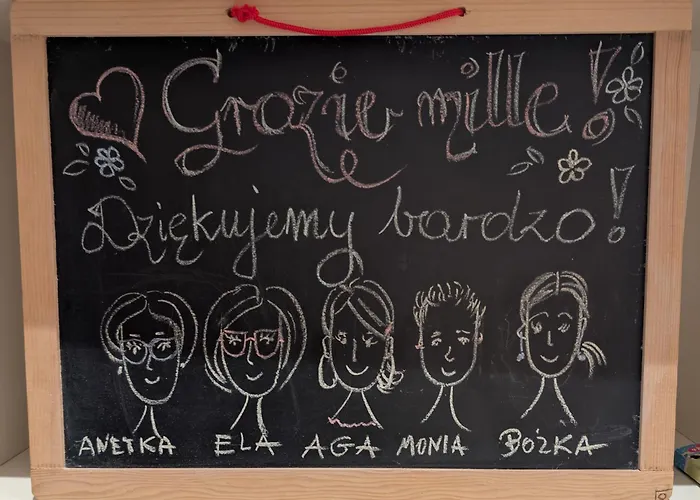 Grazie mille!
Dziękujemy bardzo!
ANETKA ELA AGA MONIA BOŻKA